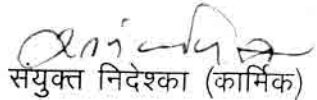 संयुक्त निदेश्का (कार्मिक)